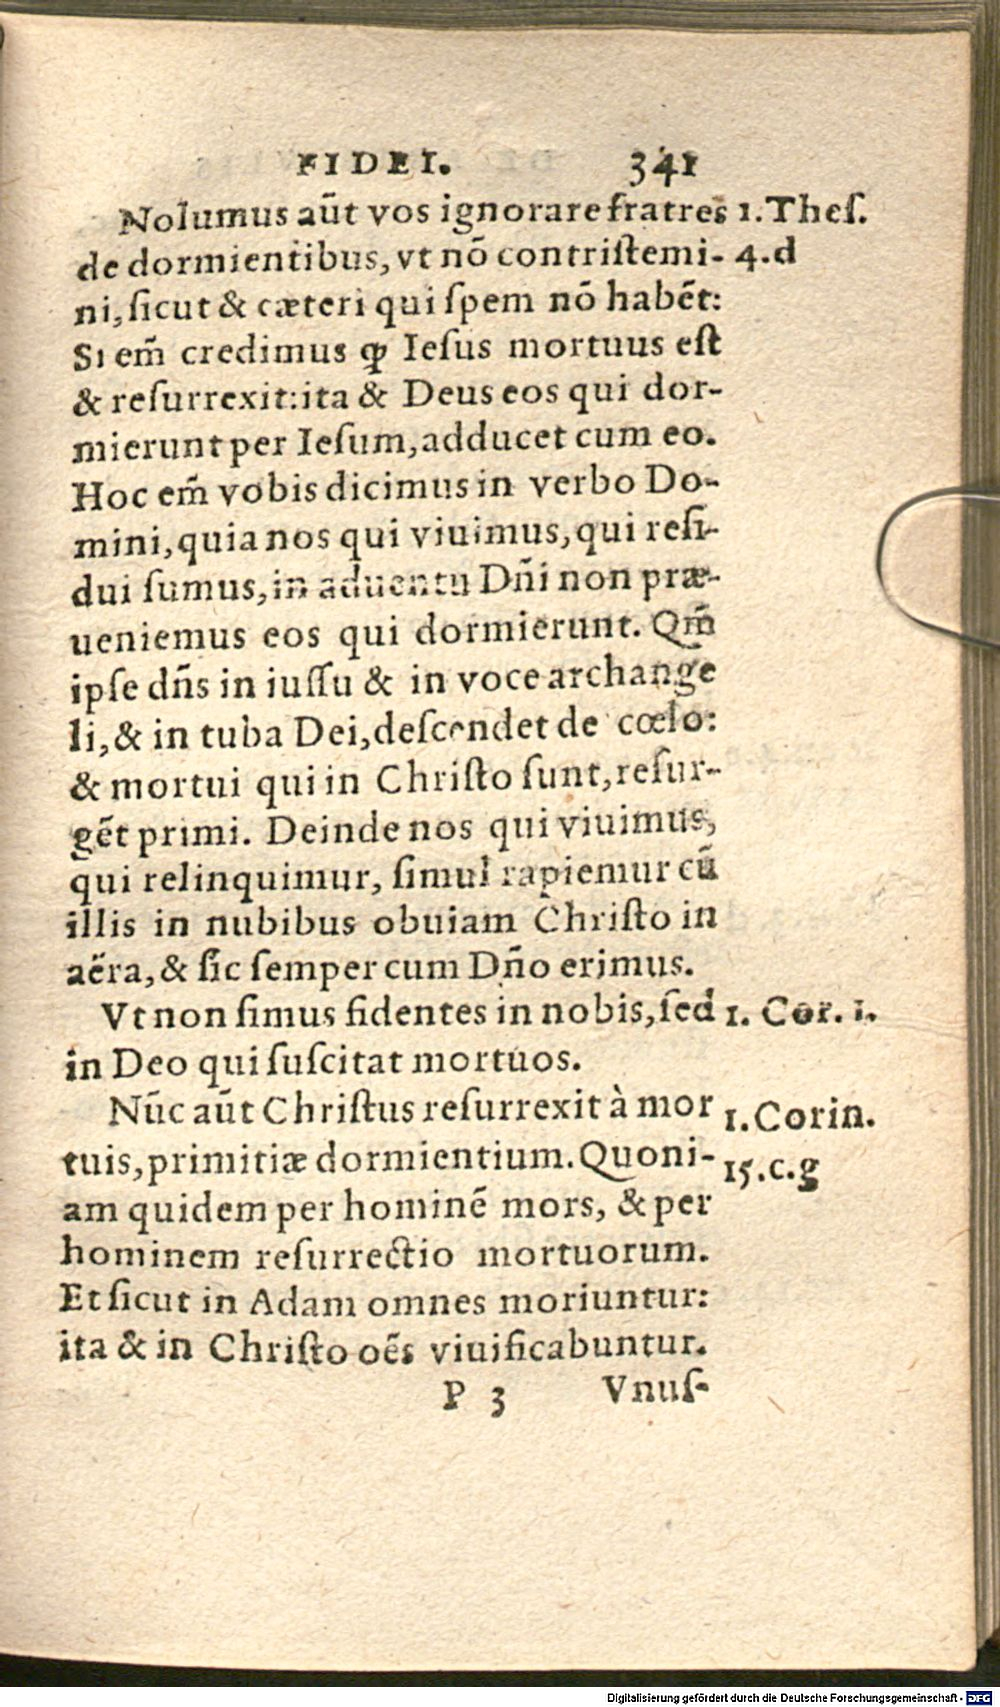 FIDEI. 341
Nolumus aūt vos ignorare fratres 1. Theſ.
de dormientibus, vt nō contriſtemi- 4.d
ni, ſicut & cæteri qui ſpem nō habēt:
Si em̃ credimus ꝙ Ieſus mortuus eſt
& reſurrexit: ita & Deus eos qui dor-
mierunt per Ieſum, adducet cum eo.
Hoc em̃ vobis dicimus in verbo Do-
mini, quia nos qui viuimus, qui reſi-
dui ſumus, in aduentu Dñi non præ-
ueniemus eos qui dormierunt. Qm̃
ipſe dñs in iuſſu & in voce archange
li, & in tuba Dei, deſcendet de cœlo:
& mortui qui in Chriſto ſunt, reſur-
gēt primi. Deinde nos qui viuimus,
qui relinquimur, ſimul rapiemur cū
illis in nubibus obuiam Chriſto in
aëra, & ſic ſemper cum Dño erimus.
Vt non ſimus fidentes in nobis, ſed 1. Cor. 1.
in Deo qui ſuſcitat mortuos.
Nūc aūt Chriſtus reſurrexit à mor 1. Corin.
tuis, primitiæ dormientium. Quoni- 15.c.g
am quidem per hominē mors, & per
hominem reſurrectio mortuorum.
Et ſicut in Adam omnes moriuntur:
ita & in Chriſto oēs viuificabuntur.
P 3 Vnuſ-
Digitalisierung gefördert durch die Deutsche Forschungsgemeinschaft - DFG